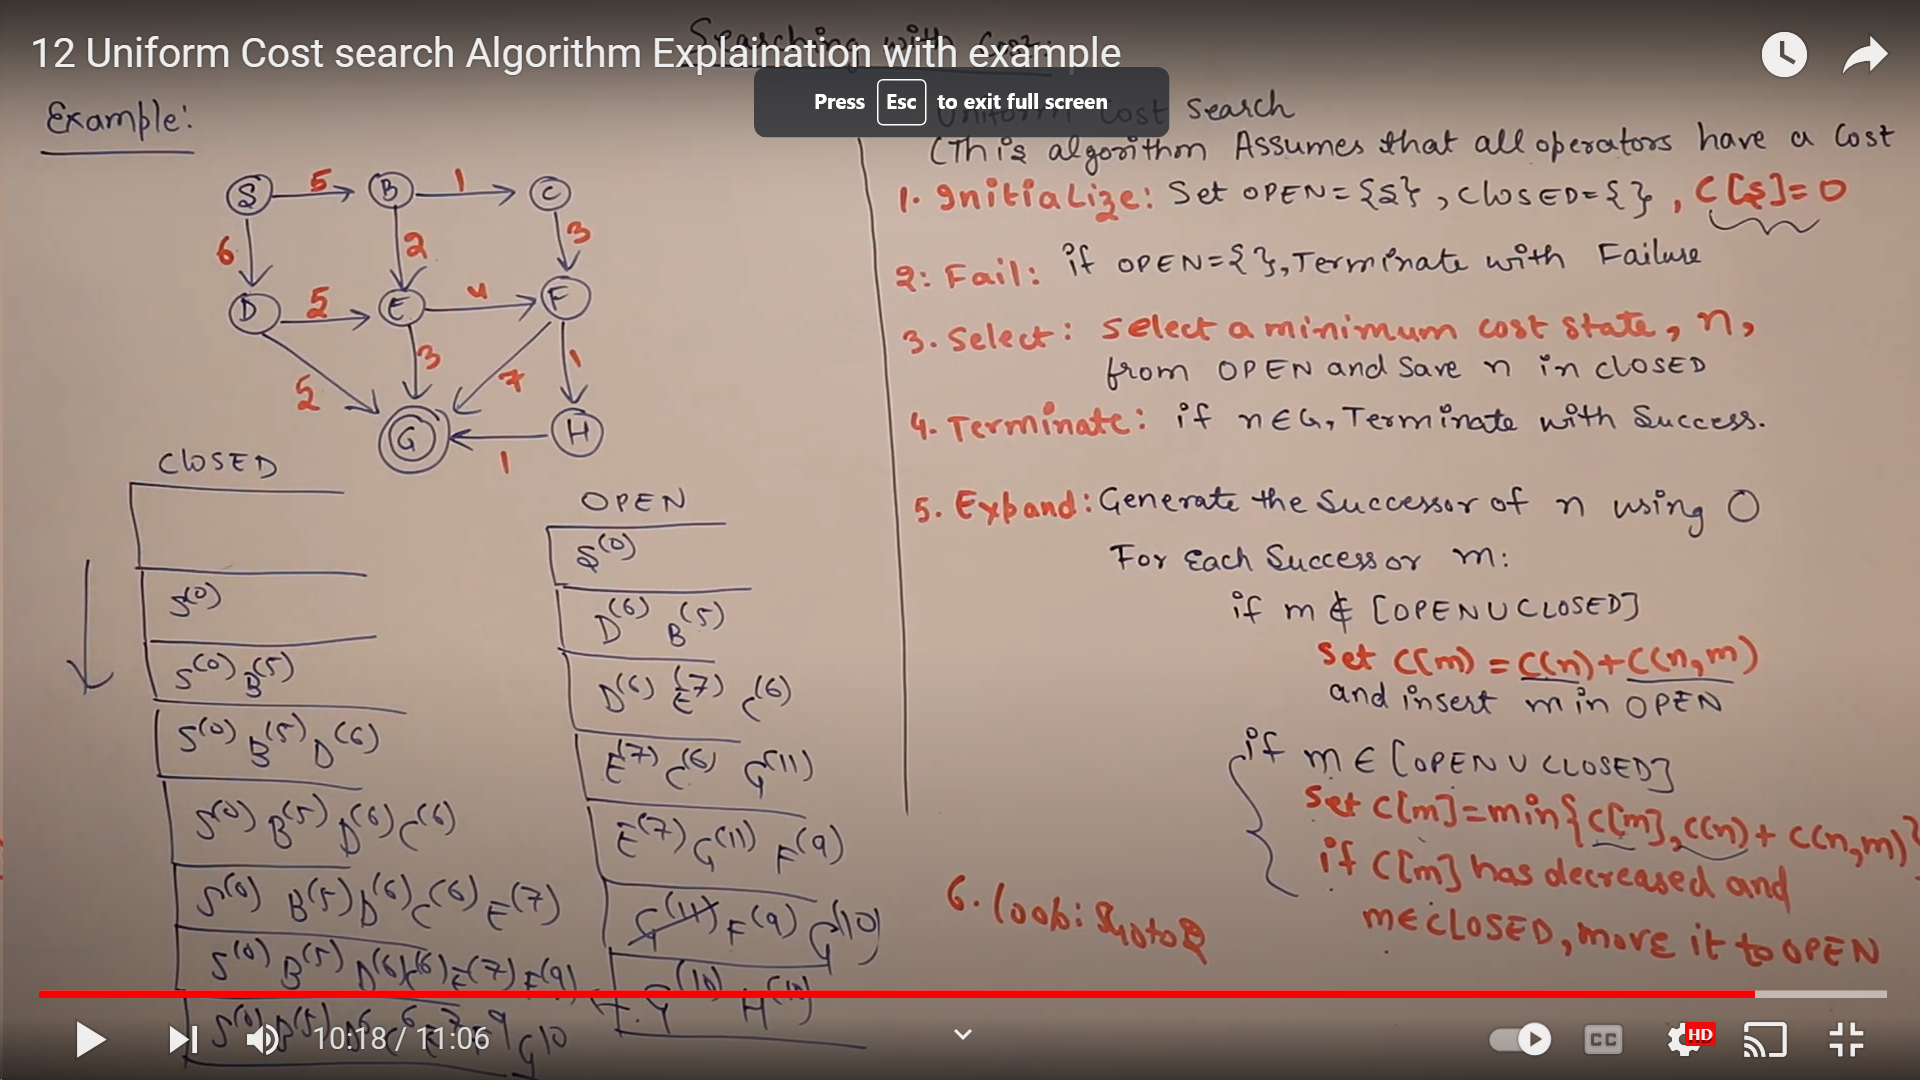 12 Uniform Cost search Algorithm Explaination with example
Press Esc to exit full screen
Example:
S 5 B 1 C
6 2 3
D 5 E 4 F
5 3 7 1
G 1 H
CLOSED
S(0)
S(0) B(5)
S(0) B(5) D(6)
S(0) B(5) D(6) C(6)
S(0) B(5) D(6) C(6) E(7)
S(0) B(5) D(6) C(6) E(7) F(9)
S(0) B(5) D6 C6 E7 F9 G10
OPEN
S(0)
D(6) B(5)
D(6) E(7) C(6)
E(7) C(6) G(11)
E(7) G(11) F(9)
G(11) F(9) G(10)
G(10) H(10)
Searching with Cost:
Uniform Cost Search
(This algorithm Assumes that all operators have a Cost
1. Initialize: Set OPEN={S}, CLOSED={}, C[S]=0
2: Fail: if OPEN={}, Terminate with Failure
3. Select: Select a minimum cost state, n,
from OPEN and Save n in CLOSED
4. Terminate: if n∈G, Terminate with Success.
5. Expand: Generate the Successor of n using O
For Each Successor m:
if m ∉ [OPEN U CLOSED]
Set C(m) = C(n)+C(n,m)
and insert m in OPEN
if m ∈ [OPEN U CLOSED]
Set C[m]=min{C[m], C(n)+ C(n,m)}
if C[m] has decreased and
m∈CLOSED, move it to OPEN
6. loop: Goto 2
10:18 / 11:06
CC
HD